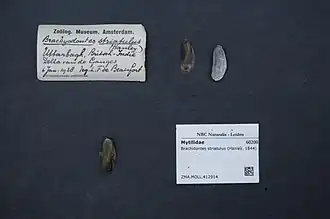 Zoölog. Museum, Amsterdam.
Brachyodontes striatulus
(Hanley)
British-Indië
Delta van de Ganges
6 Jan. 1938 leg. L.F. de Beaufort
NBC Naturalis - Leiden
Mytilidae 60200
Brachidontes striatulus (Hanley, 1844)
ZMA.MOLL.412914